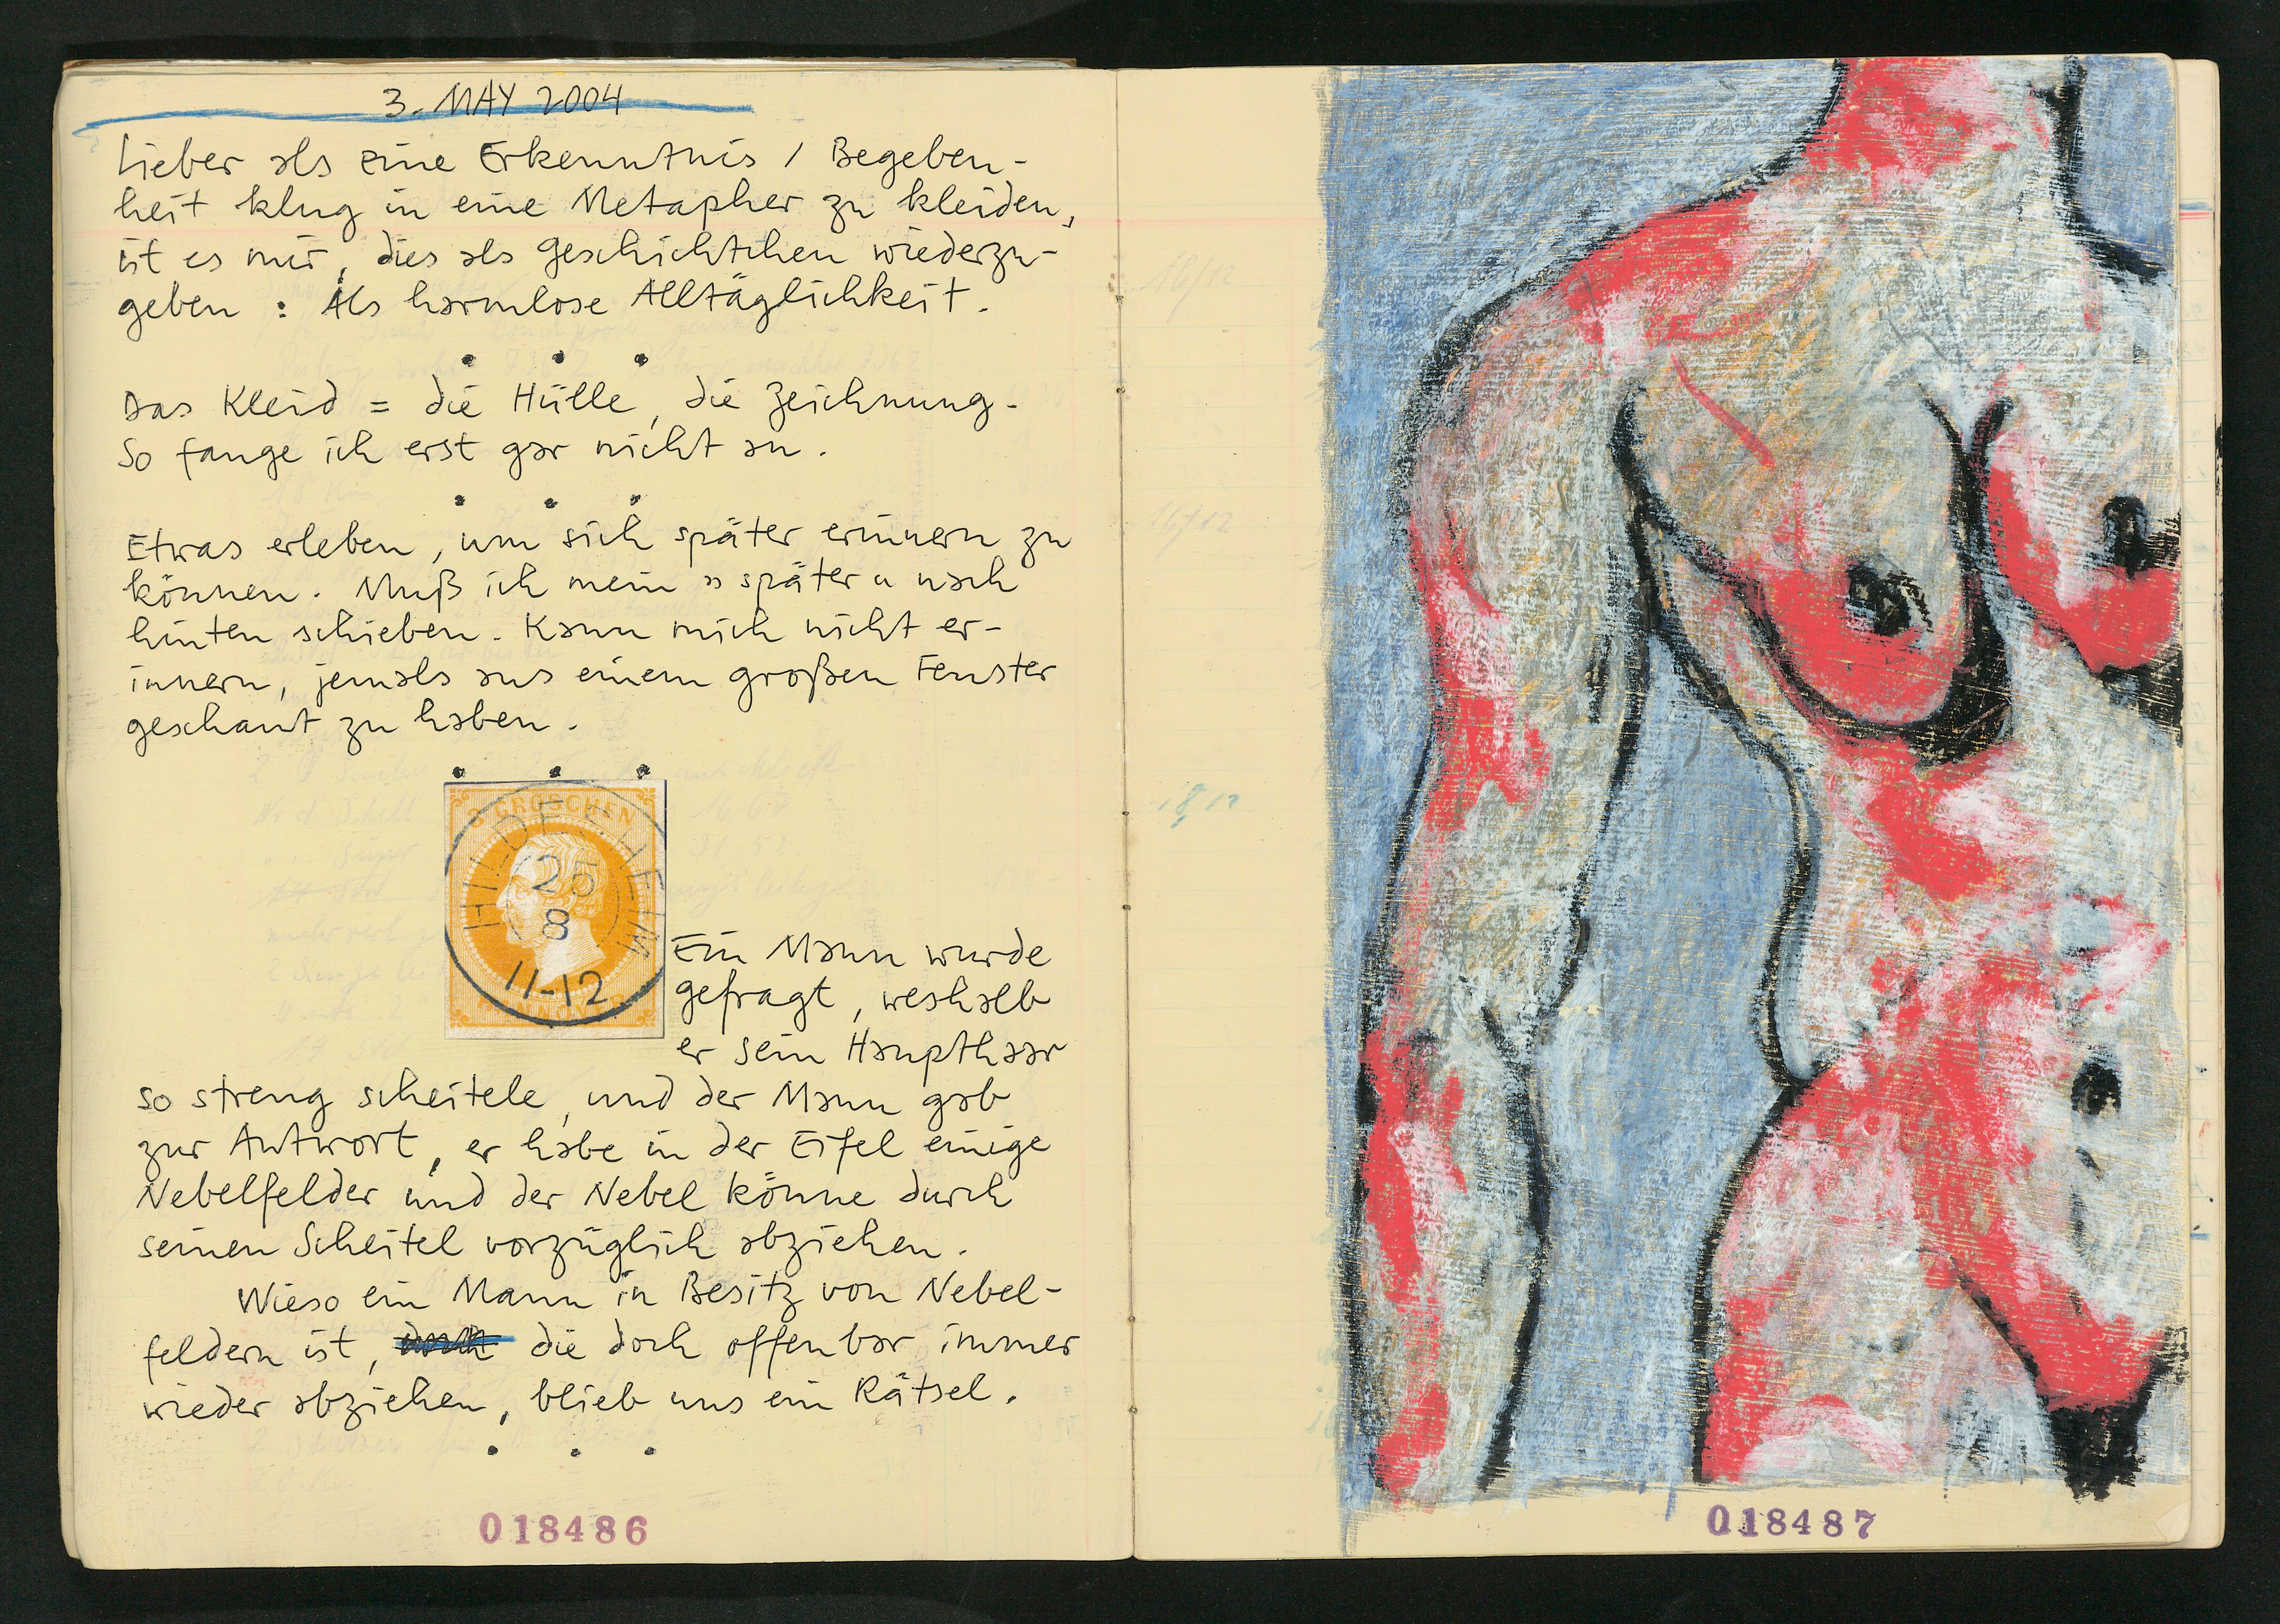 3. MAY 2004
Lieber als eine Erkenntnis / Begeben-
heit klug in eine Metapher zu kleiden,
ist es mir, dies als Geschichtchen wiederzu-
geben : Als harmlose Alltäglichkeit.
• • •
Das Kleid = die Hülle, die Zeichnung.
So fange ich erst gar nicht an.
• • •
Etwas erleben, um sich später erinnern zu
können. Muß ich mein "später" nach
hinten schieben. Kann mich nicht er-
innern, jemals aus einem großen Fenster
geschaut zu haben.
• • •
3 GROSCHEN
HILDESHEIM
25
8
11-12
Ein Mann wurde
gefragt, weshalb
er sein Haupthaar
so streng scheitele, und der Mann gab
zur Antwort, er habe in der Eifel einige
Nebelfelder und der Nebel könne durch
seinen Scheitel vorzüglich abziehen.
Wieso ein Mann in Besitz von Nebel-
feldern ist, die doch offenbar immer
wieder abziehen, blieb uns ein Rätsel.
• • •
018486
16/12
16/12
18/12
018487